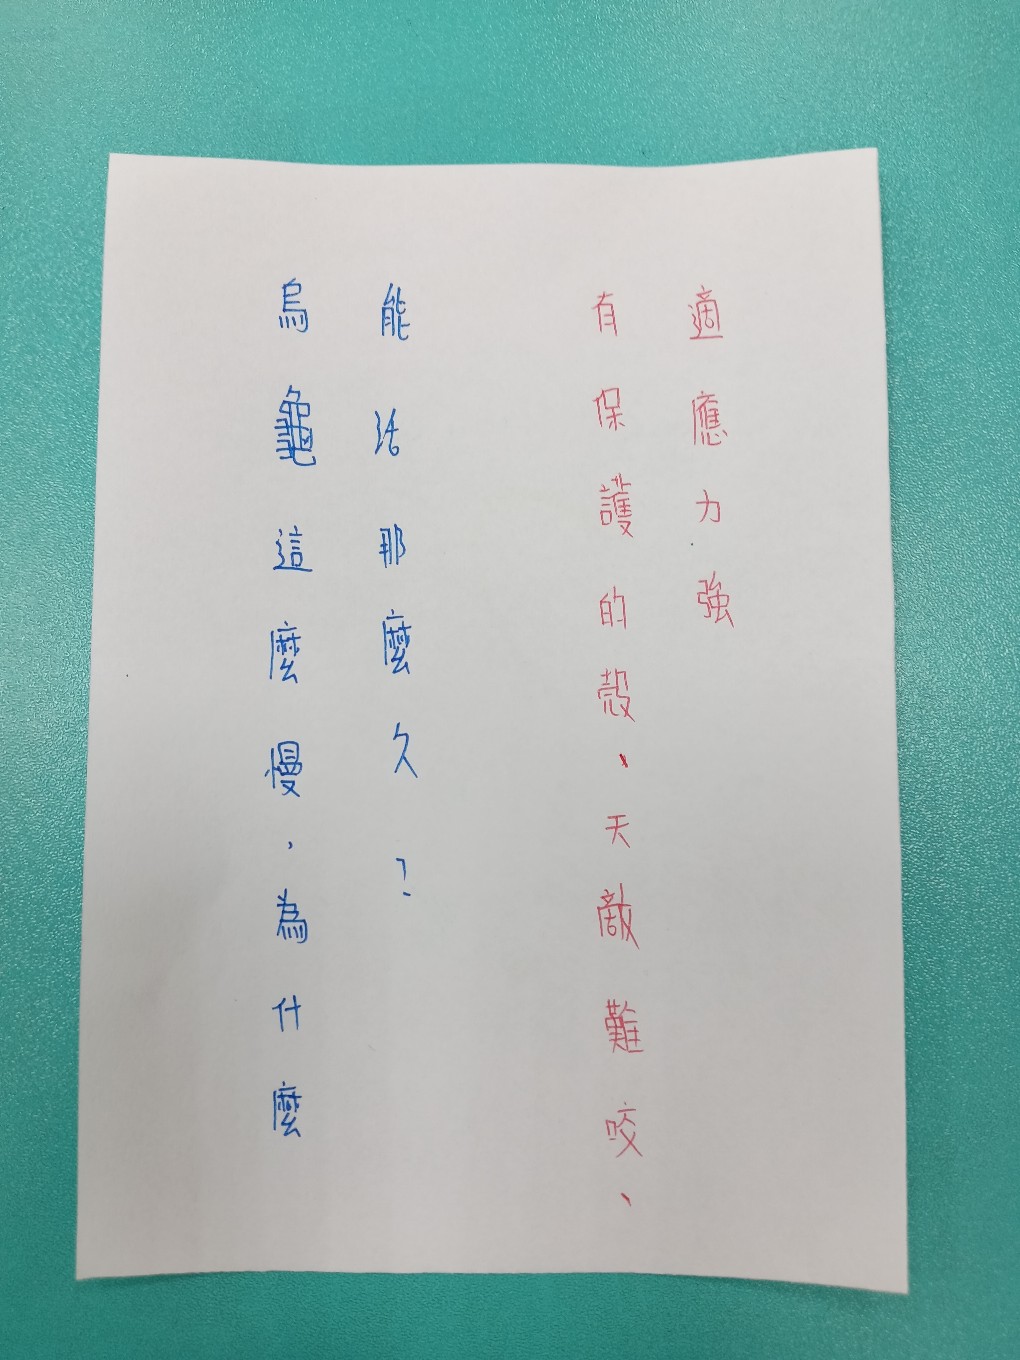 烏龜這麼慢，為什麼
能活那麼久？
有保護的殼、天敵難咬、
適應力強